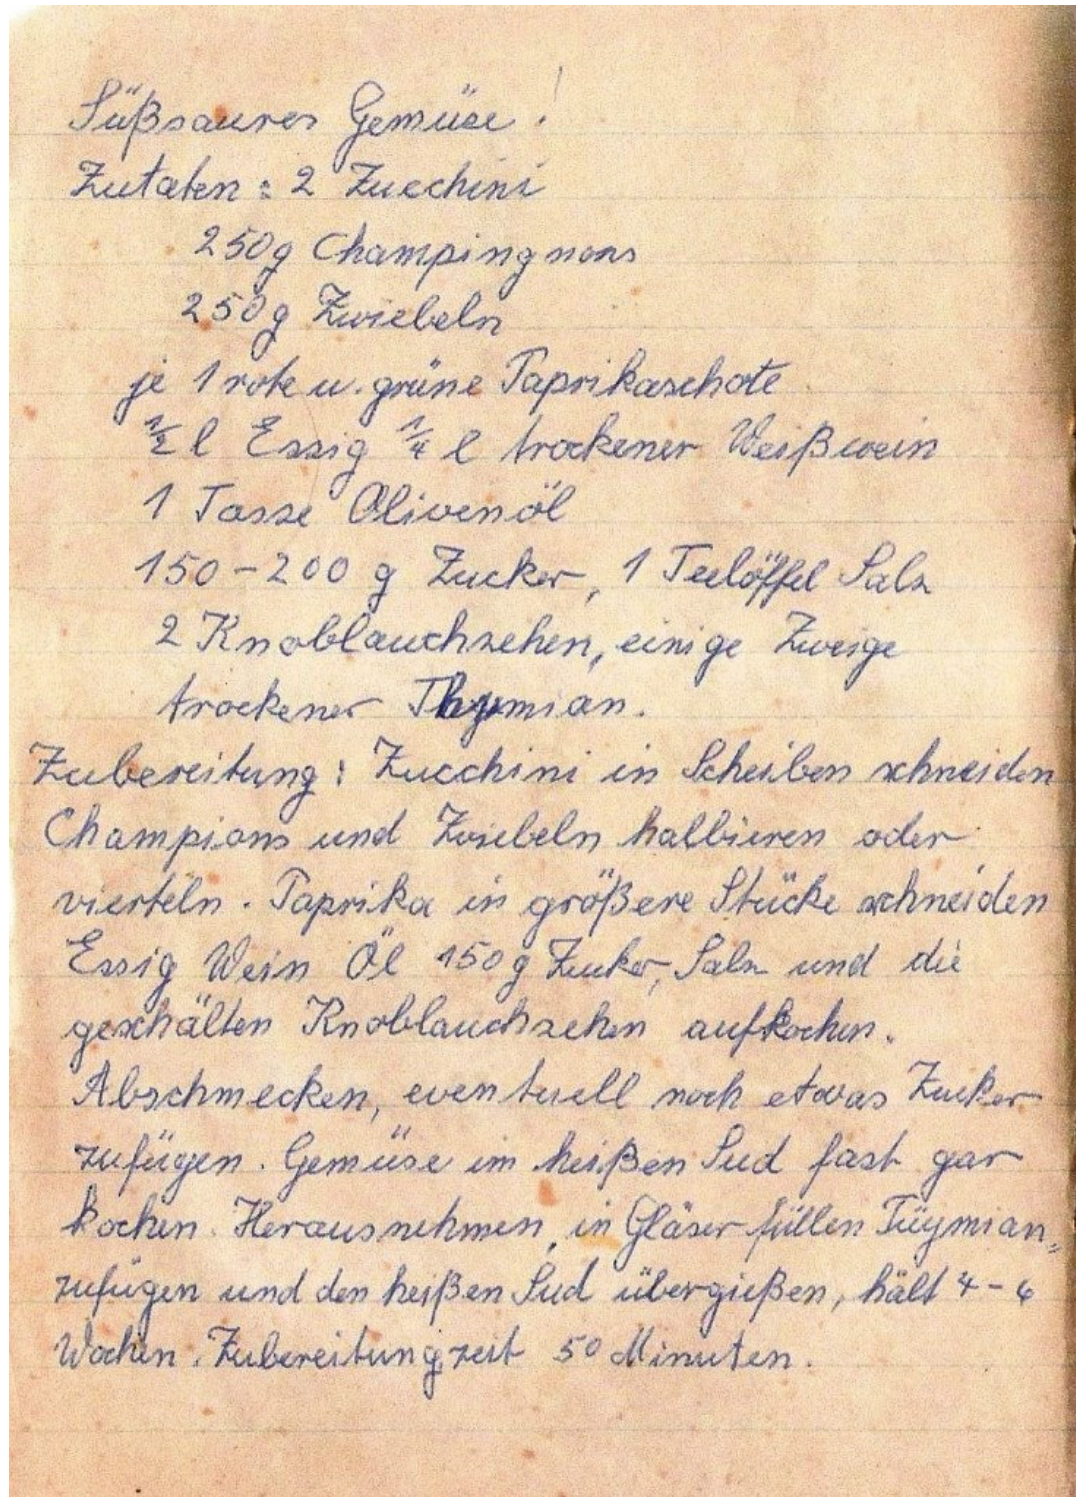 Süßsaures Gemüse!
Zutaten: 2 Zucchini
250g Champingnons
250g Zwiebeln
je 1 rote u. grüne Paprikaschote
½ l Essig ¼ l trockener Weißwein
1 Tasse Olivenöl
150-200 g Zucker, 1 Teelöffel Salz
2 Knoblauchzehen, einige Zweige
trockener Thymian.
Zubereitung: Zucchini in Scheiben schneiden
Champions und Zwiebeln halbieren oder
vierteln. Paprika in größere Stücke schneiden
Essig Wein Öl 150g Zucker, Salz und die
geschälten Knoblauchzehen aufkochen.
Abschmecken, eventuell noch etwas Zucker
zufügen. Gemüse im heißen Sud fast gar
kochen. Herausnehmen, in Gläser füllen Tüymian
zufügen und den heißen Sud übergießen, hält 4-6
Wochen. Zubereitungzeit 50 Minuten.